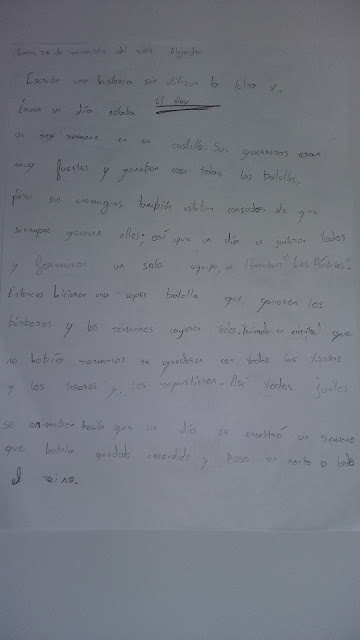 Lunes 24 de noviembre del 2014 Alejandro
Escribe una historia sin utilizar la letra v.
El Rey
Érase un día estaba
un rey romano en su castillo. Sus guerreros eran
muy fuertes y ganaban casi todas las batallas,
Pero sus enemigos también estaban cansados de que
siempre ganaran ellos; así que un día se juntaron todos
y formaron un solo equipo, se llamaban "Los Bárbaros".
Entonces hicieron una super batalla que ganaron los
bárbaros y los romanos cayeron todos. que
no había romanos se quedaron con todas las tierras
y los tesoros y los repartieron. Así todos juntos
se hasta que un día se encontró un romano
que había quedado escondido y puso en a todo
el reino.